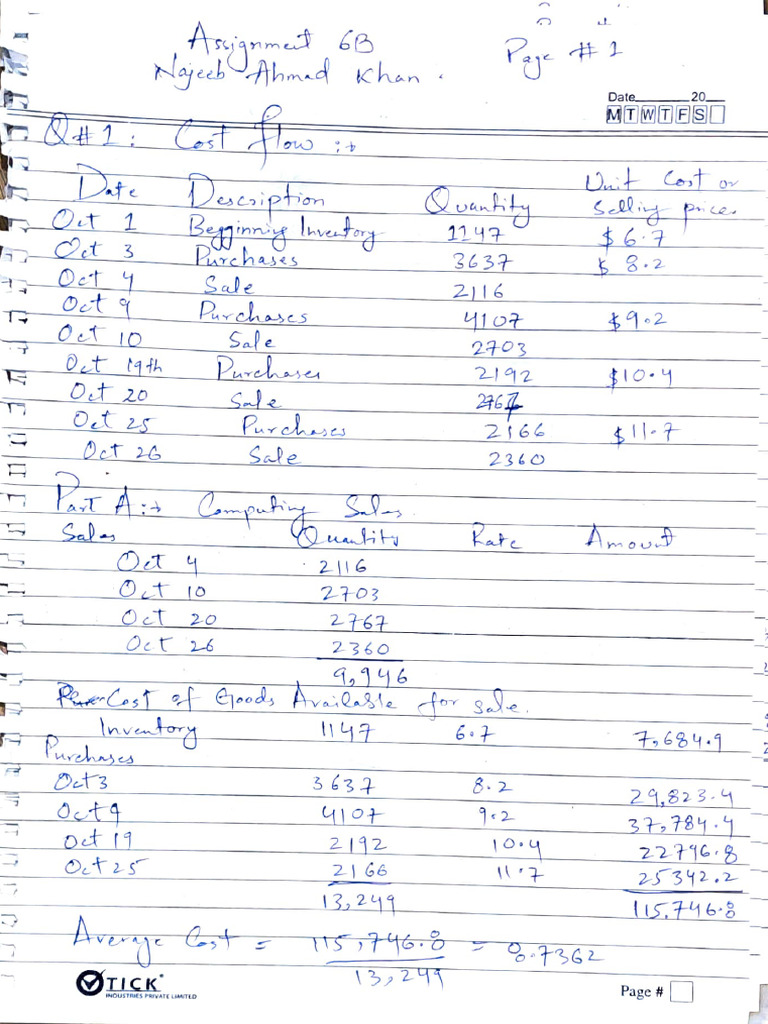 Assignment 6B Page # 1
Najeeb Ahmad Khan.
Date 20
M T W T F S
Q#1: Cost flow :→
Date Description Quantity Unit Cost or Selling price
Oct 1 Begginning Inventory 1147 $6.7
Oct 3 Purchases 3637 $8.2
Oct 4 Sale 2116
Oct 9 Purchases 4107 $9.2
Oct 10 Sale 2703
Oct 19th Purchases 2192 $10.4
Oct 20 Sale 2767
Oct 25 Purchases 2166 $11.7
Oct 26 Sale 2360
Part A :→ Computing Sales
Sales Quantity Rate Amount
Oct 4 2116
Oct 10 2703
Oct 20 2767
Oct 26 2360
9,946
Cost of Goods Available for sale.
Inventory 1147 6.7 7,684.9
Purchases
Oct 3 3637 8.2 29,823.4
Oct 9 4107 9.2 37,784.4
Oct 19 2192 10.4 22796.8
Oct 25 2166 11.7 25342.2
13,249 115,746.8
Average Cost = 115,746.8 = 8.7362
13,249
TICK
INDUSTRIES PRIVATE LIMITED
Page #